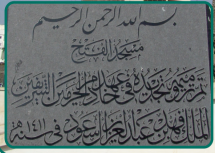 بسم الله الرحمن الرحيم
مسجد الفتح
تم ترميمه وتجديده في عهد خادم الحرمين الشريفين
الملك فهد بن عبد العزيز آل سعود في سنة ١٤١١ هـ